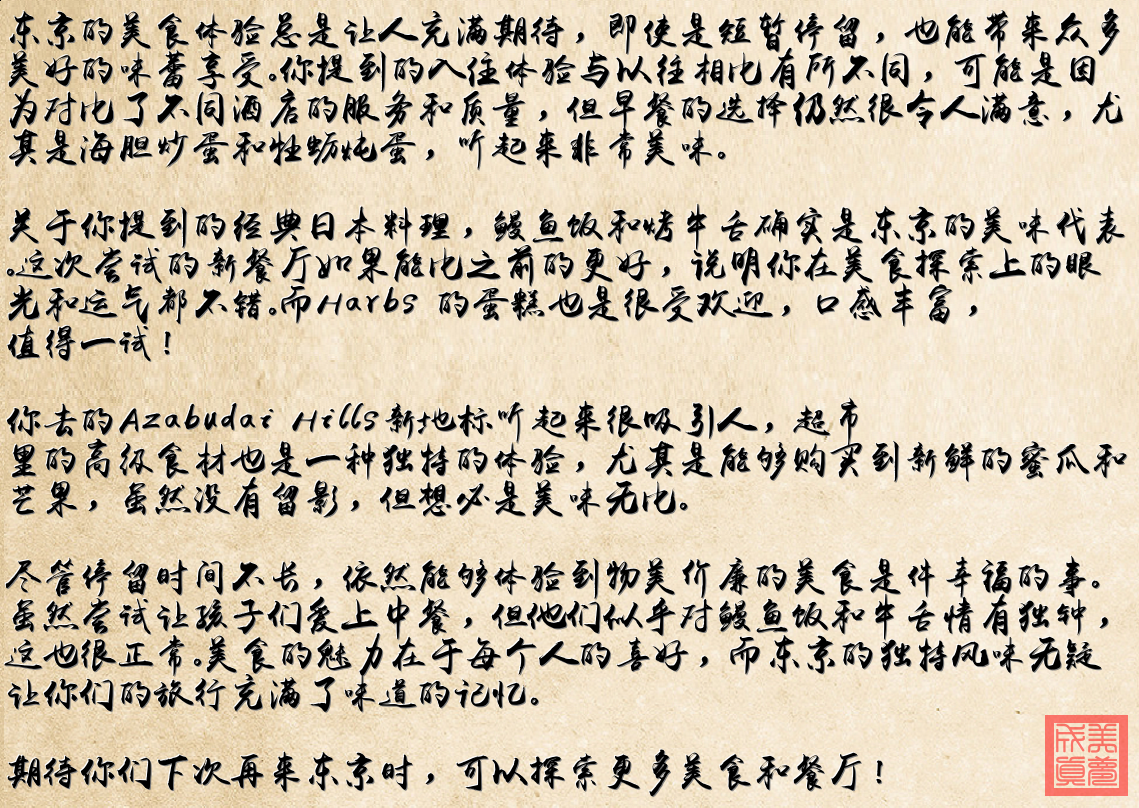 东京的美食体验总是让人充满期待，即使是短暂停留，也能带来众多
美好的味蕾享受。你提到的入住体验与以往相比有所不同，可能是因
为对比了不同酒店的服务和质量，但早餐的选择仍然很令人满意，尤
其是海胆炒蛋和牡蛎炖蛋，听起来非常美味。
关于你提到的经典日本料理，鳗鱼饭和烤牛舌确实是东京的美味代表
。这次尝试的新餐厅如果能比之前的更好，说明你在美食探索上的眼
光和运气都不错。而Harbs 的蛋糕也是很受欢迎，口感丰富，
值得一试！
你去的Azabudai Hills新地标听起来很吸引人，超市
里的高级食材也是一种独特的体验，尤其是能够购买到新鲜的蜜瓜和
芒果，虽然没有留影，但想必是美味无比。
尽管停留时间不长，依然能够体验到物美价廉的美食是件幸福的事。
虽然尝试让孩子们爱上中餐，但他们似乎对鳗鱼饭和牛舌情有独钟，
这也很正常。美食的魅力在于每个人的喜好，而东京的独特风味无疑
让你们的旅行充满了味道的记忆。
期待你们下次再来东京时，可以探索更多美食和餐厅！